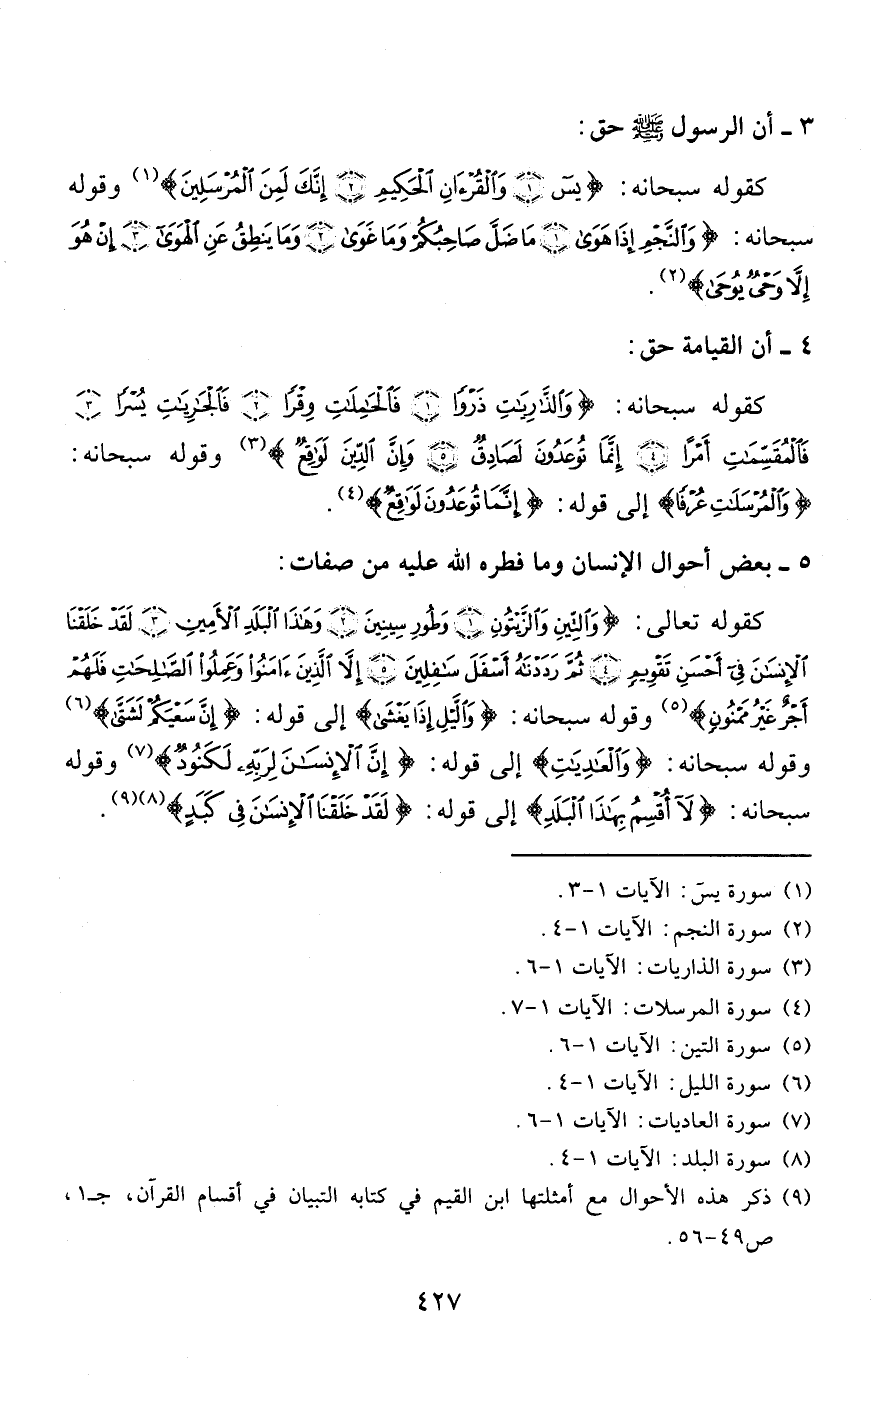 ٣ ـ أن الرسول ﷺ حق :
كقوله سبحانه : ﴿ يسٓ ۝١ وَٱلْقُرْءَانِ ٱلْحَكِيمِ ۝٢ إِنَّكَ لَمِنَ ٱلْمُرْسَلِينَ ﴾(١) وقوله
سبحانه : ﴿ وَٱلنَّجْمِ إِذَا هَوَىٰ ۝١ مَا ضَلَّ صَاحِبُكُمْ وَمَا غَوَىٰ ۝٢ وَمَا يَنطِقُ عَنِ ٱلْهَوَىٰٓ ۝٣ إِنْ هُوَ
إِلَّا وَحْىٌ يُوحَىٰ ﴾(٢) .
٤ ـ أن القيامة حق :
كقوله سبحانه : ﴿ وَٱلذَّارِيَٰتِ ذَرْوًا ۝١ فَٱلْحَٰمِلَٰتِ وِقْرًا ۝٢ فَٱلْجَٰرِيَٰتِ يُسْرًا ۝٣
فَٱلْمُقَسِّمَٰتِ أَمْرًا ۝٤ إِنَّمَا تُوعَدُونَ لَصَادِقٌ ۝٥ وَإِنَّ ٱلدِّينَ لَوَٰقِعٌ ﴾(٣) وقوله سبحانه :
﴿ وَٱلْمُرْسَلَٰتِ عُرْفًا ﴾ إلى قوله : ﴿ إِنَّمَا تُوعَدُونَ لَوَٰقِعٌ ﴾(٤) .
٥ ـ بعض أحوال الإنسان وما فطره الله عليه من صفات :
كقوله تعالى : ﴿ وَٱلتِّينِ وَٱلزَّيْتُونِ ۝١ وَطُورِ سِينِينَ ۝٢ وَهَٰذَا ٱلْبَلَدِ ٱلْأَمِينِ ۝٣ لَقَدْ خَلَقْنَا
ٱلْإِنسَٰنَ فِىٓ أَحْسَنِ تَقْوِيمٍ ۝٤ ثُمَّ رَدَدْنَٰهُ أَسْفَلَ سَٰفِلِينَ ۝٥ إِلَّا ٱلَّذِينَ ءَامَنُوا۟ وَعَمِلُوا۟ ٱلصَّٰلِحَٰتِ فَلَهُمْ
أَجْرٌ غَيْرُ مَمْنُونٍ ﴾(٥) وقوله سبحانه : ﴿ وَٱلَّيْلِ إِذَا يَغْشَىٰ ﴾ إلى قوله : ﴿ إِنَّ سَعْيَكُمْ لَشَتَّىٰ ﴾(٦)
وقوله سبحانه : ﴿ وَٱلْعَٰدِيَٰتِ ﴾ إلى قوله : ﴿ إِنَّ ٱلْإِنسَٰنَ لِرَبِّهِۦ لَكَنُودٌ ﴾(٧) وقوله
سبحانه : ﴿ لَآ أُقْسِمُ بِهَٰذَا ٱلْبَلَدِ ﴾ إلى قوله : ﴿ لَقَدْ خَلَقْنَا ٱلْإِنسَٰنَ فِى كَبَدٍ ﴾(٨)(٩) .
(١) سورة يسٓ : الآيات ١-٣ .
(٢) سورة النجم : الآيات ١-٤ .
(٣) سورة الذاريات : الآيات ١-٦ .
(٤) سورة المرسلات : الآيات ١-٧ .
(٥) سورة التين : الآيات ١-٦ .
(٦) سورة الليل : الآيات ١-٤ .
(٧) سورة العاديات : الآيات ١-٦ .
(٨) سورة البلد : الآيات ١-٤ .
(٩) ذكر هذه الأحوال مع أمثلتها ابن القيم في كتابه التبيان في أقسام القرآن، جـ١ ،
ص٤٩-٥٦ .
٤٢٧